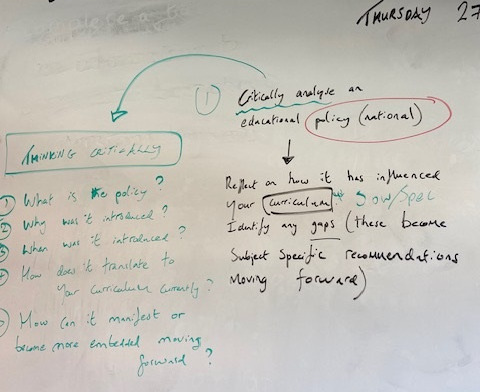 THURSDAY 27
① Critically analyse an
educational policy (national)
Reflect on how it has influenced
your curriculum SOW/Spec
Identify any gaps (these become
Subject specific recommendations
moving forward)
THINKING CRITICALLY
① What is the policy?
② Why was it introduced?
③ When was it introduced?
④ How does it translate to
your curriculum currently?
How can it manifest or
become more embedded moving
forward?